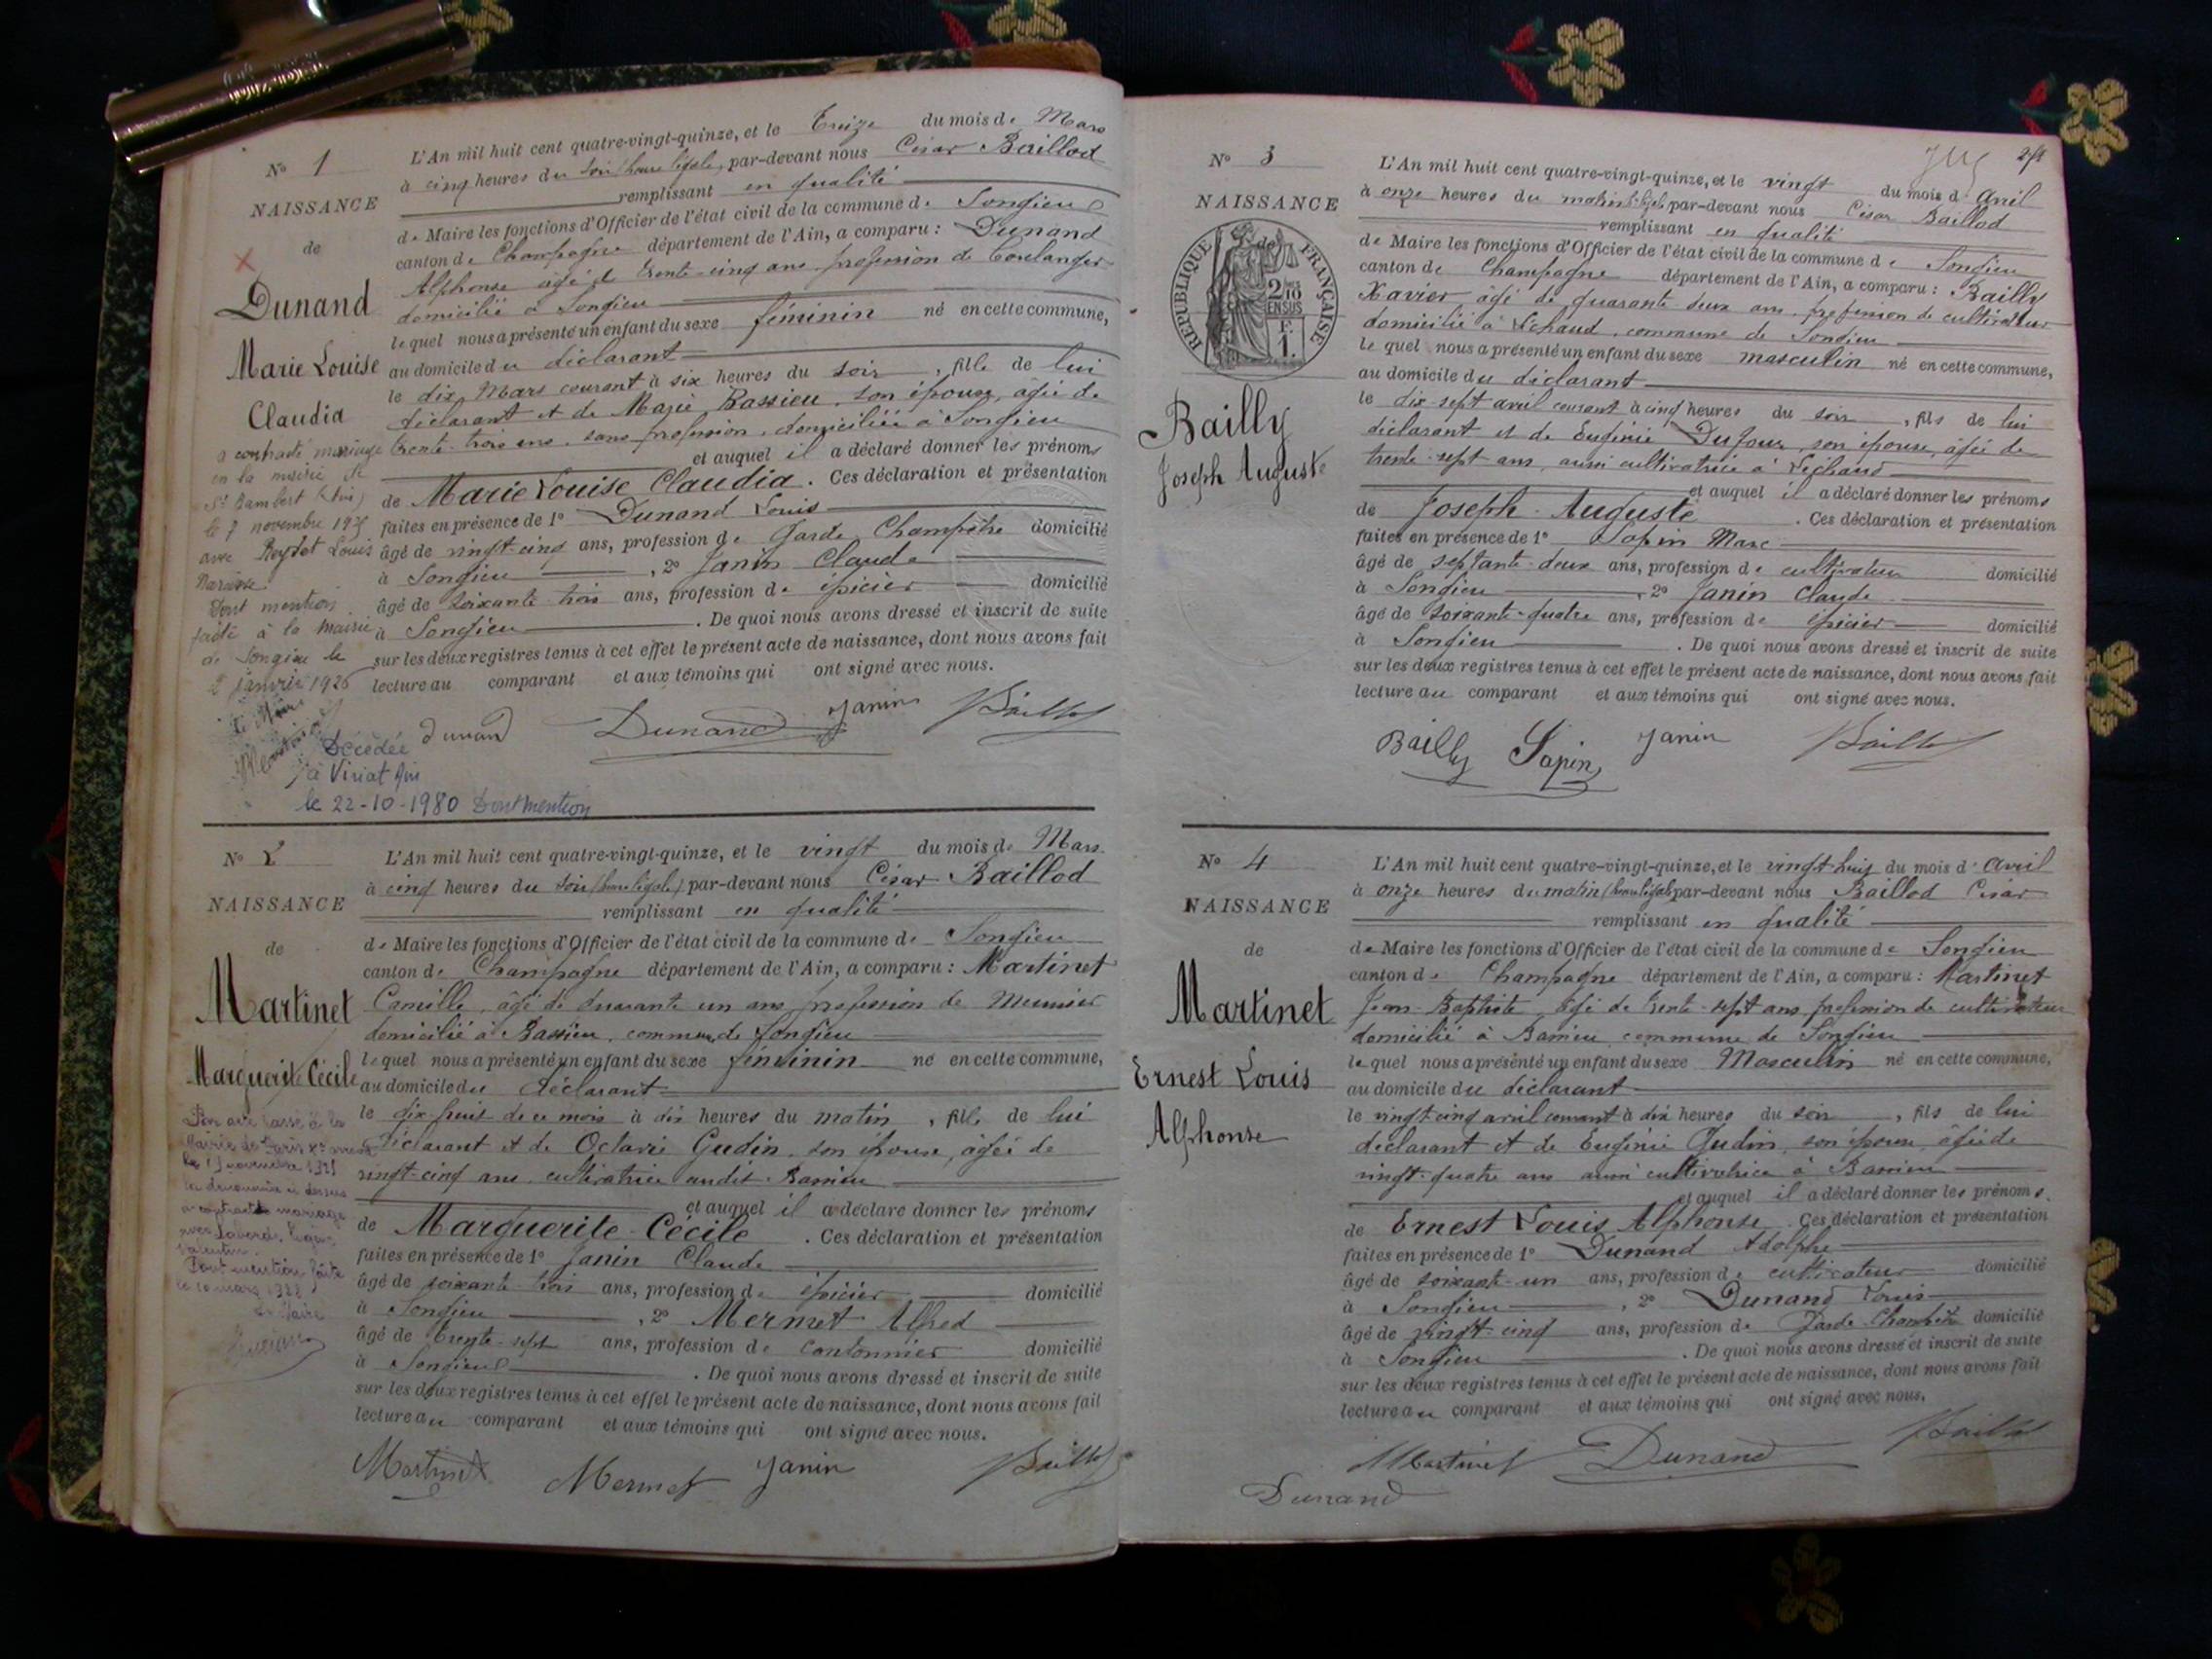 N° 1
NAISSANCE
de
Dunand
Marie Louise
Claudia
a contracté mariage
en la mairie de
St Rambert (Ain)
le 7 novembre 1925
avec Louis
Narcisse
Dont mention
faite à la mairie
de Songieu le
2 janvier 1926
Le Maire
Décédée
à Viriat Ain
le 22-10-1980 Dont mention
L'An mil huit cent quatre-vingt-quinze, et le Treize du mois de Mars
à cinq heures du soir (heure légale), par-devant nous César Baillod
remplissant en qualité
de Maire les fonctions d'Officier de l'état civil de la commune de Songieu
canton de Champagne département de l'Ain, a comparu : Dunand
Alphonse âgé de trente-cinq ans profession de boulanger
domicilié à Songieu
lequel nous a présenté un enfant du sexe féminin né en cette commune,
au domicile du déclarant
le dix Mars courant à six heures du soir, fille de lui
déclarant et de Marie Bassieu, son épouse, âgée de
trente-trois ans, sans profession, domiciliée à Songieu
et auquel il a déclaré donner les prénoms
de Marie Louise Claudia. Ces déclaration et présentation
faites en présence de 1° Dunand Louis
âgé de vingt-cinq ans, profession de Garde Champêtre domicilié
à Songieu, 2° Janin Claude
âgé de soixante-trois ans, profession de épicier domicilié
à Songieu. De quoi nous avons dressé et inscrit de suite
sur les deux registres tenus à cet effet le présent acte de naissance, dont nous avons fait
lecture au comparant et aux témoins qui ont signé avec nous.
Dunand Dunand Janin Baillod
N° 2
NAISSANCE
de
Martinet
Marguerite Cécile
Par acte passé à la
Mairie de Paris
le novembre
la dénommée ci-dessus
a contracté mariage
avec
Valentin.
Dont mention faite
le 10 mars
Le Maire
L'An mil huit cent quatre-vingt-quinze, et le vingt du mois de Mars.
à cinq heures du soir (heure légale) par-devant nous César Baillod
remplissant en qualité
de Maire les fonctions d'Officier de l'état civil de la commune de Songieu
canton de Champagne département de l'Ain, a comparu : Martinet
Camille, âgé de quarante-un ans profession de Meunier
domicilié à Bassieu, commune de Songieu
lequel nous a présenté un enfant du sexe féminin né en cette commune,
au domicile du déclarant
le dix-huit de ce mois à dix heures du matin, fille de lui
déclarant et de Octavie Gudin, son épouse, âgée de
vingt-cinq ans, cultivatrice audit Bassieu
et auquel il a déclaré donner les prénoms
de Marguerite Cécile. Ces déclaration et présentation
faites en présence de 1° Janin Claude
âgé de soixante-trois ans, profession de épicier domicilié
à Songieu, 2° Mermet Alfred
âgé de trente-sept ans, profession de Cantonnier domicilié
à Songieu. De quoi nous avons dressé et inscrit de suite
sur les deux registres tenus à cet effet le présent acte de naissance, dont nous avons fait
lecture au comparant et aux témoins qui ont signé avec nous.
Martinet Mermet Janin Baillod
N° 3
NAISSANCE
de
REPUBLIQUE FRANÇAISE
2/10
EN SUS
F.
1.
Bailly
Joseph Auguste
L'An mil huit cent quatre-vingt-quinze, et le vingt du mois d'avril
à onze heures du matin par-devant nous César Baillod
remplissant en qualité
de Maire les fonctions d'Officier de l'état civil de la commune de Songieu
canton de Champagne département de l'Ain, a comparu : Bailly
Xavier, âgé de quarante-deux ans, profession de cultivateur
domicilié à Léchaud, commune de Songieu
lequel nous a présenté un enfant du sexe masculin né en cette commune,
au domicile du déclarant
le dix-sept avril courant à cinq heures du soir, fils de lui
déclarant et de Eugénie Dufour, son épouse, âgée de
trente-sept ans, aussi cultivatrice à Léchaud
et auquel il a déclaré donner les prénoms
de Joseph Auguste. Ces déclaration et présentation
faites en présence de 1° Sapin Marc
âgé de septante-deux ans, profession de cultivateur domicilié
à Songieu, 2° Janin Claude
âgé de soixante-quatre ans, profession de épicier domicilié
à Songieu. De quoi nous avons dressé et inscrit de suite
sur les deux registres tenus à cet effet le présent acte de naissance, dont nous avons fait
lecture au comparant et aux témoins qui ont signé avec nous.
Bailly Sapin Janin Baillod
N° 4
NAISSANCE
de
Martinet
Ernest Louis
Alphonse
L'An mil huit cent quatre-vingt-quinze, et le vingt-huit du mois d'avril
à onze heures du matin (heure légale) par-devant nous Baillod César
remplissant en qualité
de Maire les fonctions d'Officier de l'état civil de la commune de Songieu
canton de Champagne département de l'Ain, a comparu : Martinet
Jean-Baptiste, âgé de trente-sept ans profession de cultivateur
domicilié à Bassieu commune de Songieu
lequel nous a présenté un enfant du sexe Masculin né en cette commune,
au domicile du déclarant
le vingt-cinq avril courant à dix heures du soir, fils de lui
déclarant et de Eugénie Gudin, son épouse, âgée de
vingt-quatre ans aussi cultivatrice à Bassieu
et auquel il a déclaré donner les prénoms.
de Ernest Louis Alphonse. Ces déclaration et présentation
faites en présence de 1° Dunand Adolphe
âgé de soixante-un ans, profession de cultivateur domicilié
à Songieu, 2° Dunand Louis
âgé de vingt-cinq ans, profession de Garde-Champêtre domicilié
à Songieu. De quoi nous avons dressé et inscrit de suite
sur les deux registres tenus à cet effet le présent acte de naissance, dont nous avons fait
lecture au comparant et aux témoins qui ont signé avec nous.
Martinet Dunand Baillod
Dunand